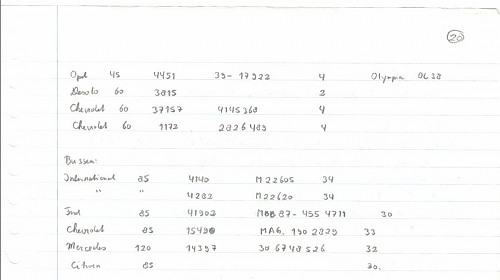 20
Opel 45 4451 39-17922 4 Olympia OL38
Desoto 60 3815 2
Chevrolet 60 37157 4145368 4
Chevrolet 60 1172 2826489 4
Bussen:
International 85 4140 M22605 34
" " 4282 M22620 34
85 41902 455 4711 30
Chevrolet 85 MAG. 190 2829 33
Mercedes 120 14397 30 6748526 32
Citroen 85 30.